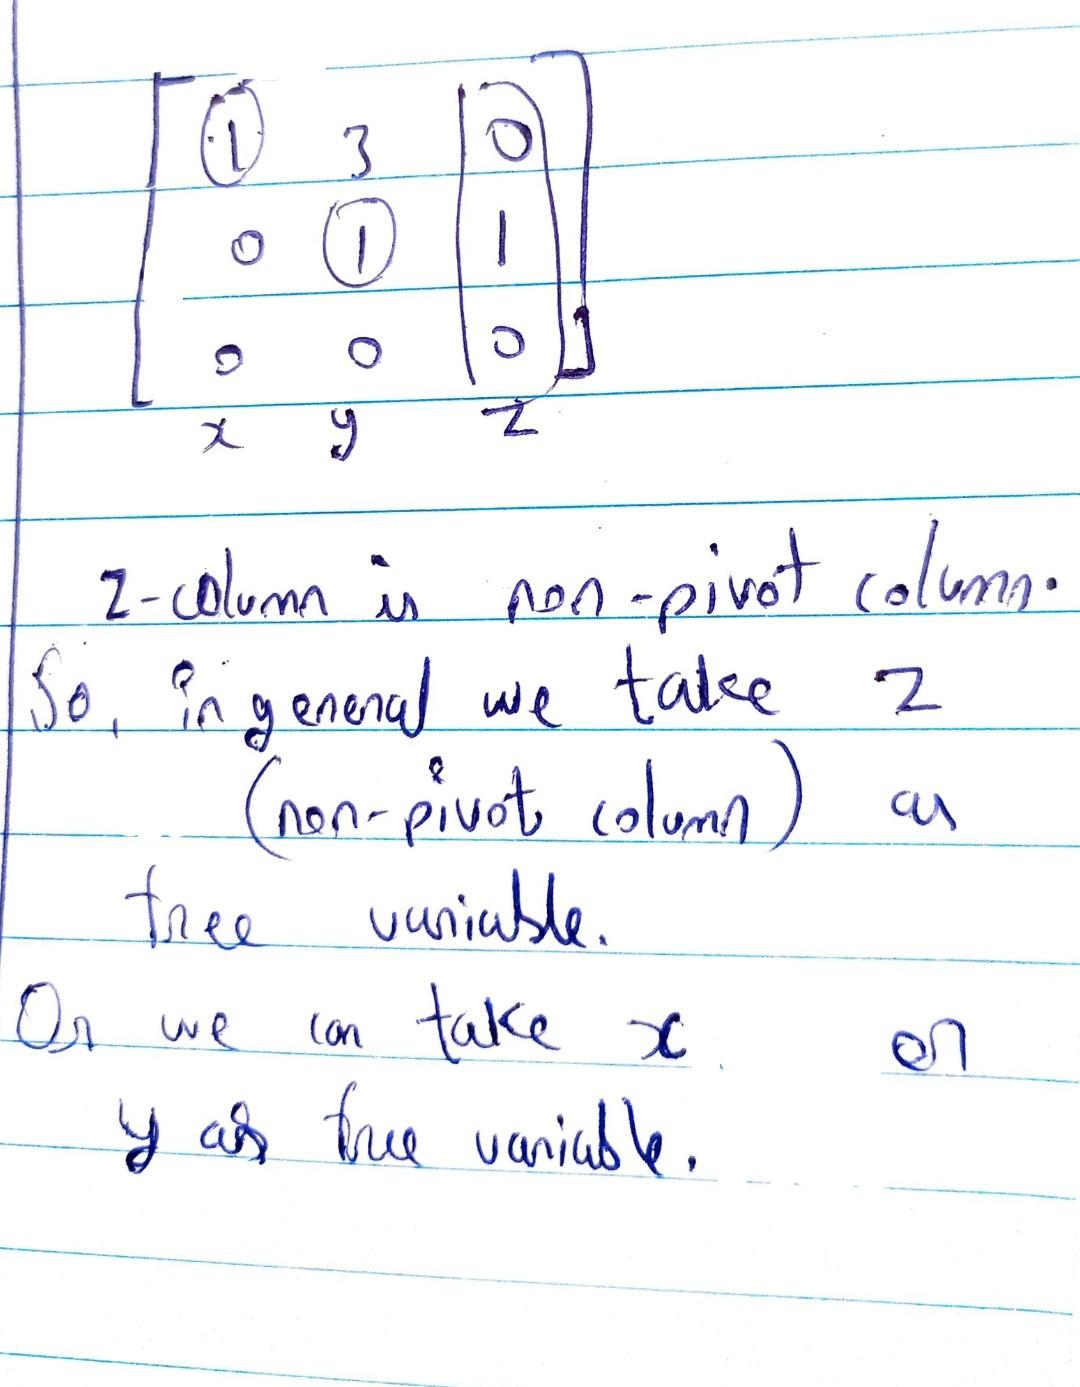 1 3 0
0 1 1
0 0 0
x y z
z-column is non-pivot column.
So, in general we take z
(non-pivot column) as
free variable.
Or we can take x or
y as free variable.